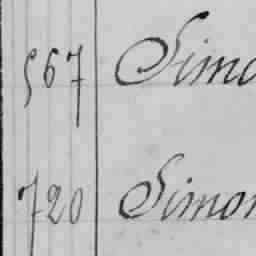 567 Simo
720 Simon